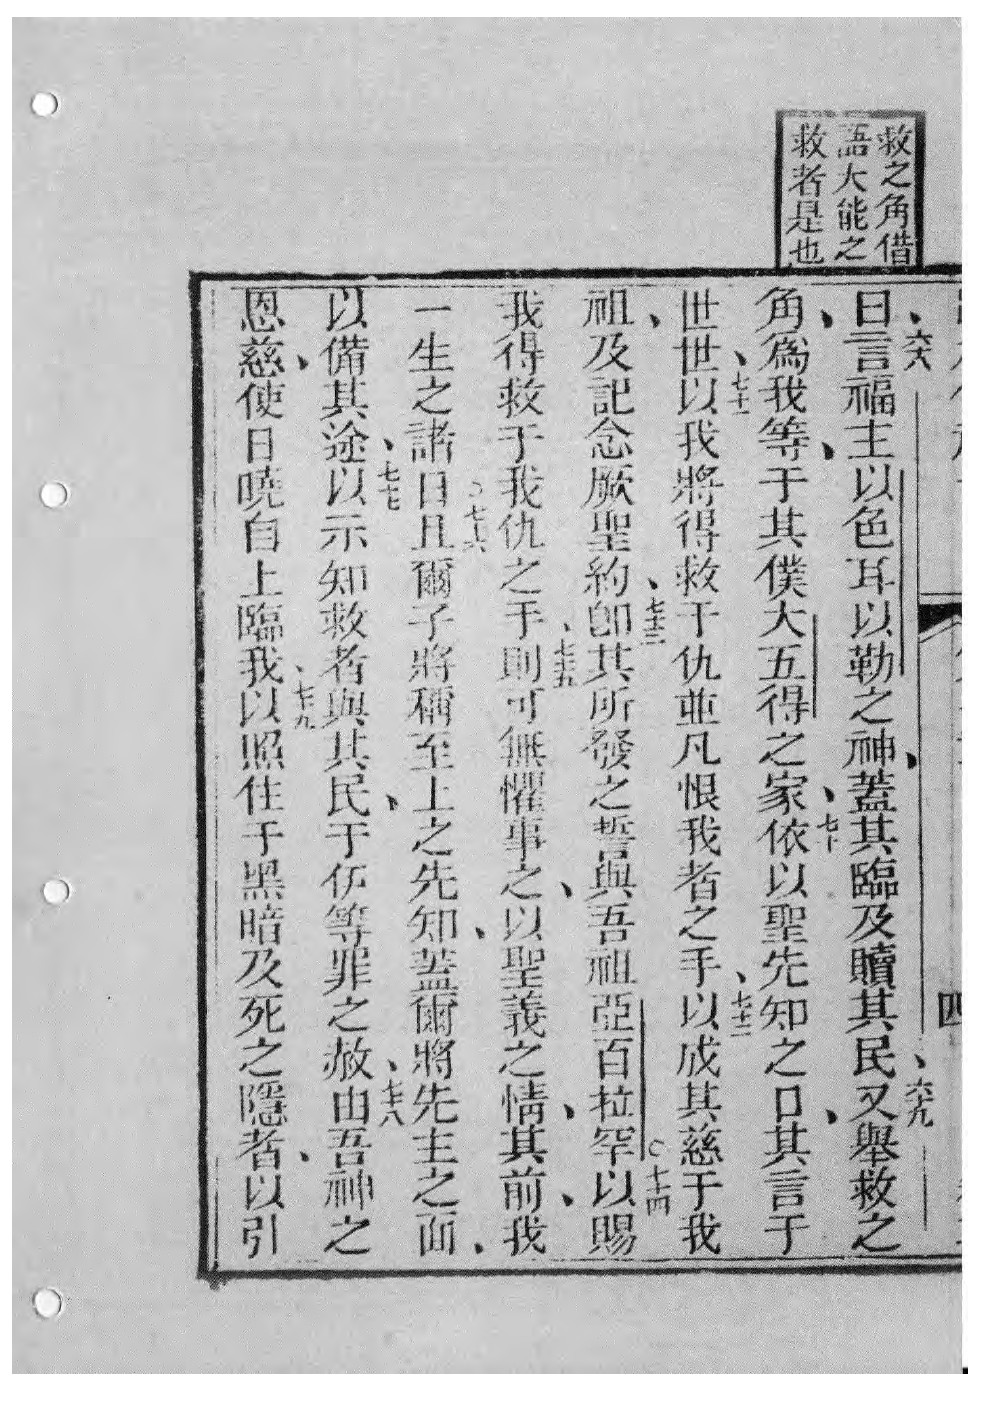 救之角借
語大能之
救者是也
四
六八
曰言福主以色耳以勒之神蓋其臨及贖其民又舉救之
六九
角為我等于其僕大五得之家依以聖先知之口其言于
七十
世世以我將得救于仇並凡恨我者之手以成其慈于我
七十一
七十二
祖及記念厥聖約卽其所發之誓與吾祖亞百拉罕以賜
七十三
七十四
我得救于我仇之手則可無懼事之以聖義之情其前我
七十五
一生之諸日且爾子將稱至上之先知蓋爾將先主之面
七十六
以備其途以示知救者與其民于伊等罪之赦由吾神之
七十七
七十八
恩慈使日曉自上臨我以照住于黑暗及死之隱者以引
七十九